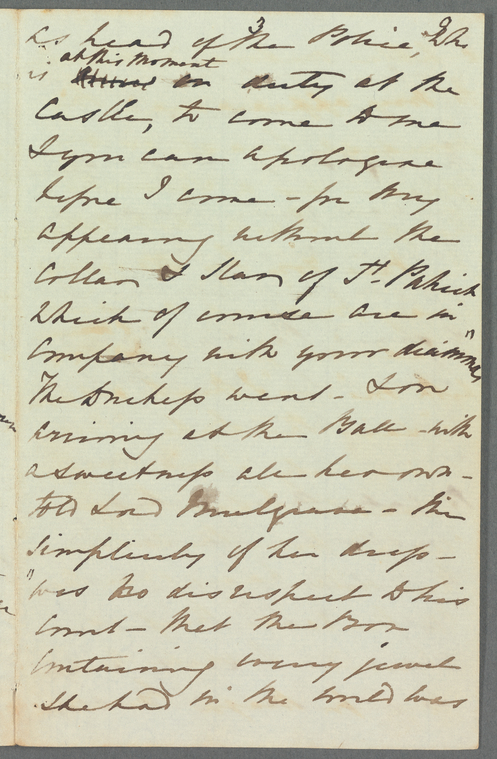 3
as head of the Police, who
at this moment
is on duty at the
Castle, to come to me
& you can apologise
before I come - for my
appearing without the
Collar & Star of St. Patrick
which of course are in
company with your diamonds"
The Duchess went - & on
arriving at the Ball - with
a sweetness all her own -
told Lord Mulgrave - the
simplicity of her dress -
"was no disrespect to his
Court - that the Box
containing every jewel
she had in the world was